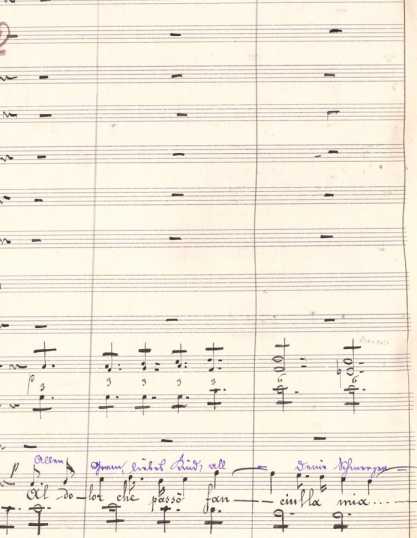 p 3 3 3 3 3 6 6
Allen Gram, liebes Kind, all deine Schmerzen
Al do-lor che passò fan-ciulla mia...